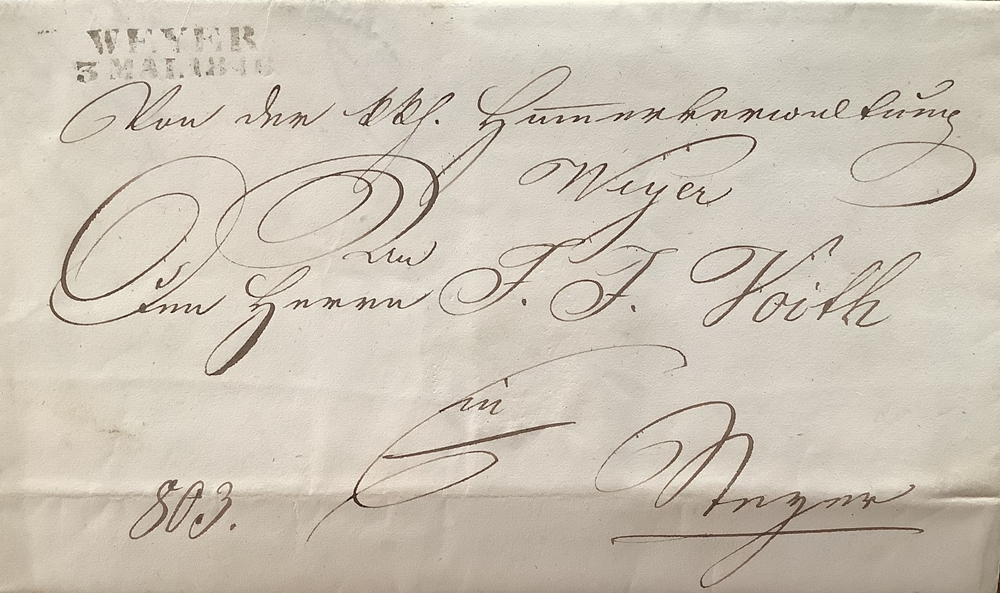 WEYER
3 MAI. 1846
Von der kkh. Ham̅erverwaltung
Weyer
An
den Herrn J. J. Voith
in
Steyer
803.